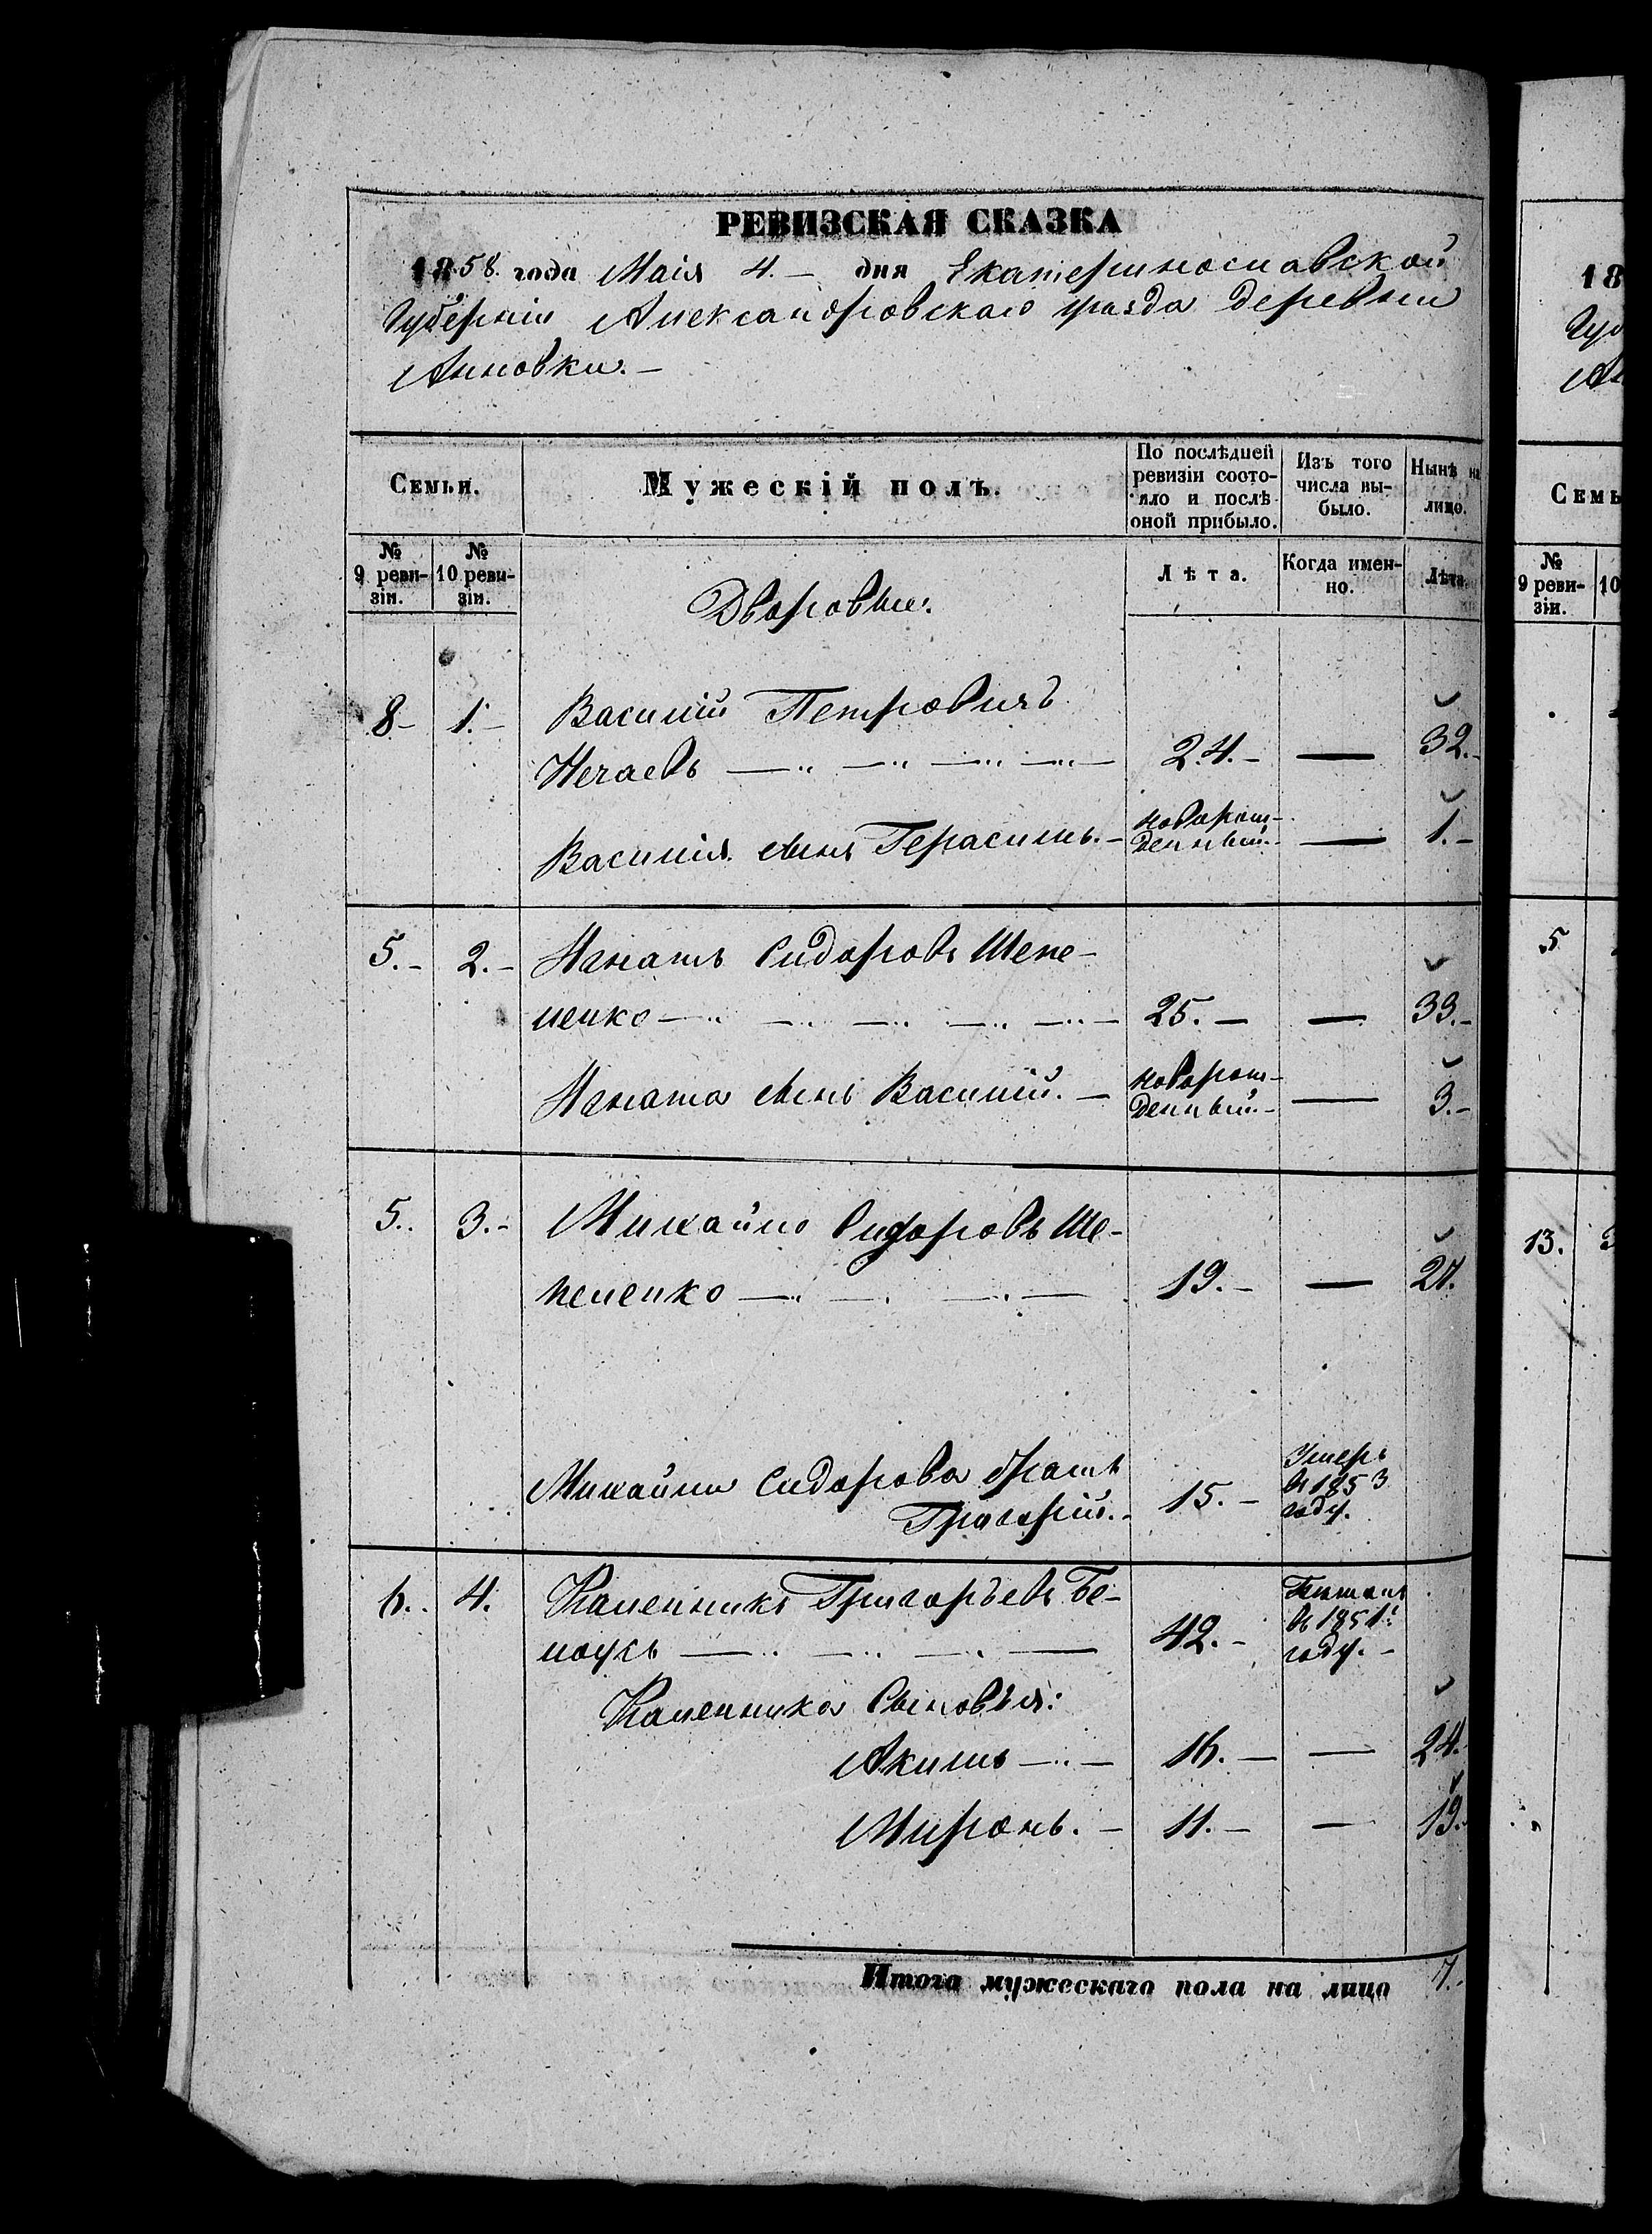 РЕВИЗСКАЯ СКАЗКА
1858. года Маія 4.— дня Екатеринославской
Губерніи Александровскаго уѣзда деревни
Анновки.—
Семьи.
Мужескій полъ.
По послѣдней ревизіи состояло и послѣ оной прибыло.
Изъ того числа выбыло.
Нынѣ на лицо.
№ 9 ревизіи.
№ 10 ревизіи.
Лѣта.
Когда именно.
Лѣта.
Дворовые:
8— 1.— Василій Петровичъ
Нечаевъ 24.— — 32.—
Василія сынъ Герасимъ.— новорожденный.— — 1.—
5.— 2.— Игнатъ Сидоровъ Шепе-
ленко 25.— — 33.—
Игната сынъ Василій.— новорожденный.— — 3.—
5.. 3.— Михайло Сидоровъ Ше-
пеленко 19.— — 27.
Михайлы Сидорова братъ
Григорій.— 15.— Умеръ въ 1853 году.
6.. 4. Каленникъ Григорьевъ Бе-
лоусъ 42.— въ 1851 году.—
Каленника Сыновья:
Акимъ 16.— — 24.
Миронъ.— 11.— — 19.
Итога мужескаго пола на лицо 7.—
18
Семь
№ 9 ревизіи.
10
5
13. 3